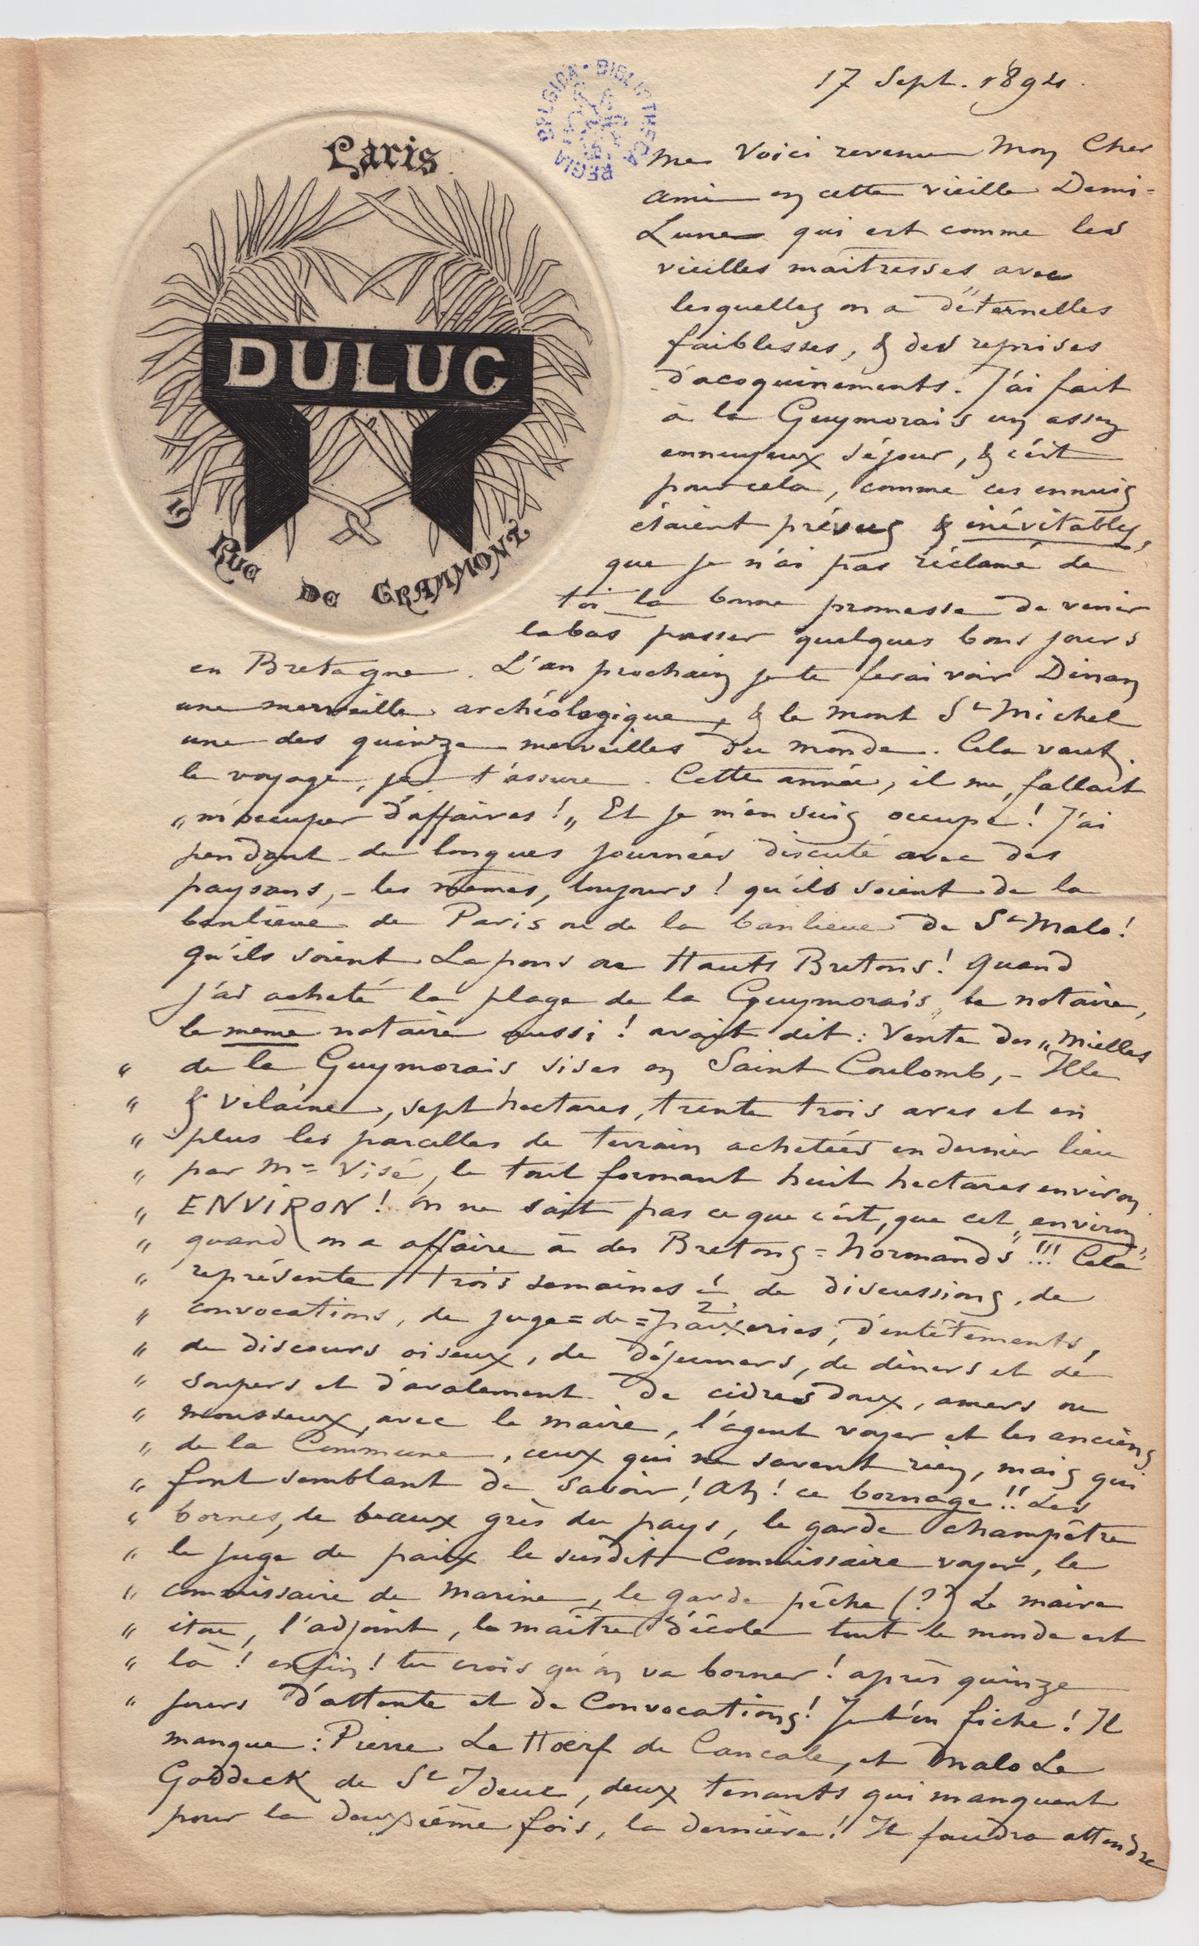 17 Sept. 1894.
REGIA BELGICA BIBLIOTHECA
Paris
DULUC
19 RUE DE GRAMMONT
Me Voici revenu Mon Cher
ami en cette vieille Demi-
Lune qui est comme les
vieilles maîtresses avec
lesquelles on a d'éternelles
faiblesses, & des reprises
d'acoquinements. J'ai fait
à la Guymorais un assez
ennuyeux séjour, & c'est
pour cela, comme ces ennuis
étaient prévus & inévitables,
que je n'ai pas réclamé de
toi la bonne promesse de venir
labas passer quelques bons jours
en Bretagne. L'an prochain je te ferai voir Dinan
une merveille archéologique, & le mont St Michel
une des quinze merveilles du monde. Cela vaut
le voyage, je t'assure. Cette année, il me fallait
„m'occuper d'affaires!„ Et je m'en suis occupé! J'ai
pendant de longues journées discuté avec des
paysans, - les mêmes, toujours! qu'ils soient de la
banlieue de Paris ou de la banlieue de St Malo!
qu'ils soient Lapons ou Hauts Bretons! Quand
j'ai acheté la plage de la Guymorais, le notaire,
le même notaire aussi! avait dit: Vente des „Mielles
„ de la Guymorais sises en Saint Coulomb, - Ille
„ & Vilaine, sept hectares, trente trois ares et en
„ plus les parcelles de terrain achetées en dernier lieu
„ par Mr Visé, le tout formant huit hectares environ
„ ENVIRON! On ne sait pas ce que c'est, que cet „environ„
„ quand on a affaire à des Bretons=Normands!!! Cela
„ représente trois semaines 1/2 de discussions, de
„ convocations, de juge=de=paixeries, d'entêtements,
„ de discours oiseux, de déjeuners, de dîners et de
„ soupers et d'avalement de cidres doux, amers ou
„ mousseux, avec le maire, l'agent voyer et les anciens
„ de la Commune, ceux qui ne savent rien, mais qui
„ font semblant de savoir! Ah! ce bornage!! Les
„ bornes, de beaux grès du pays, le garde champêtre
„ le juge de paix le susdit Commissaire voyer, le
„ commissaire de marine, le garde pêche (??) Le maire
„ itou, l'adjoint, le maître d'école tout le monde est
„ là! enfin! tu crois qu'on va borner! après quinze
„ jours d'attente et de Convocations! Je t'en fiche! Il
manque: Pierre Le Hoërf de Cancale, et Malo Le
Goddeck de St Ideuc, deux tenants qui manquent
pour la deuxième fois, la dernière! Il faudra attendre